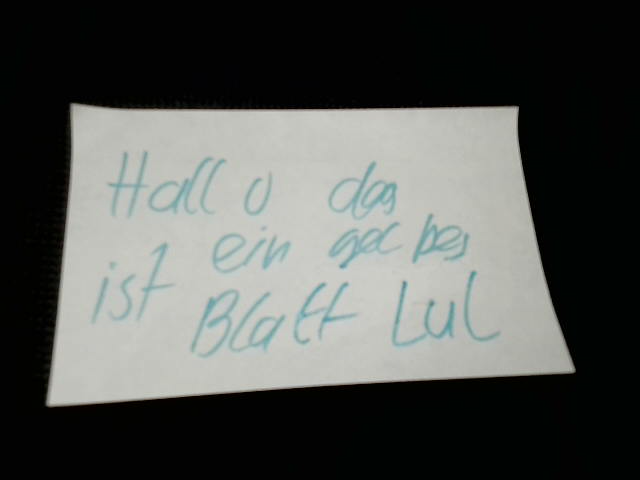 Hallo das
ist ein gelbes
Blatt Lul